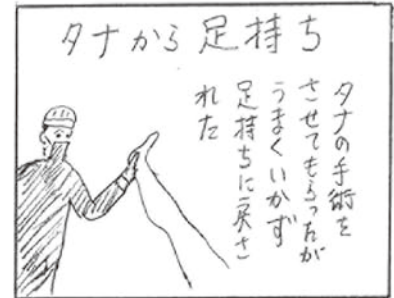 タナから足持ち
タナの手術を
させてもらったが
うまくいかず
足持ちに戻さ
れた